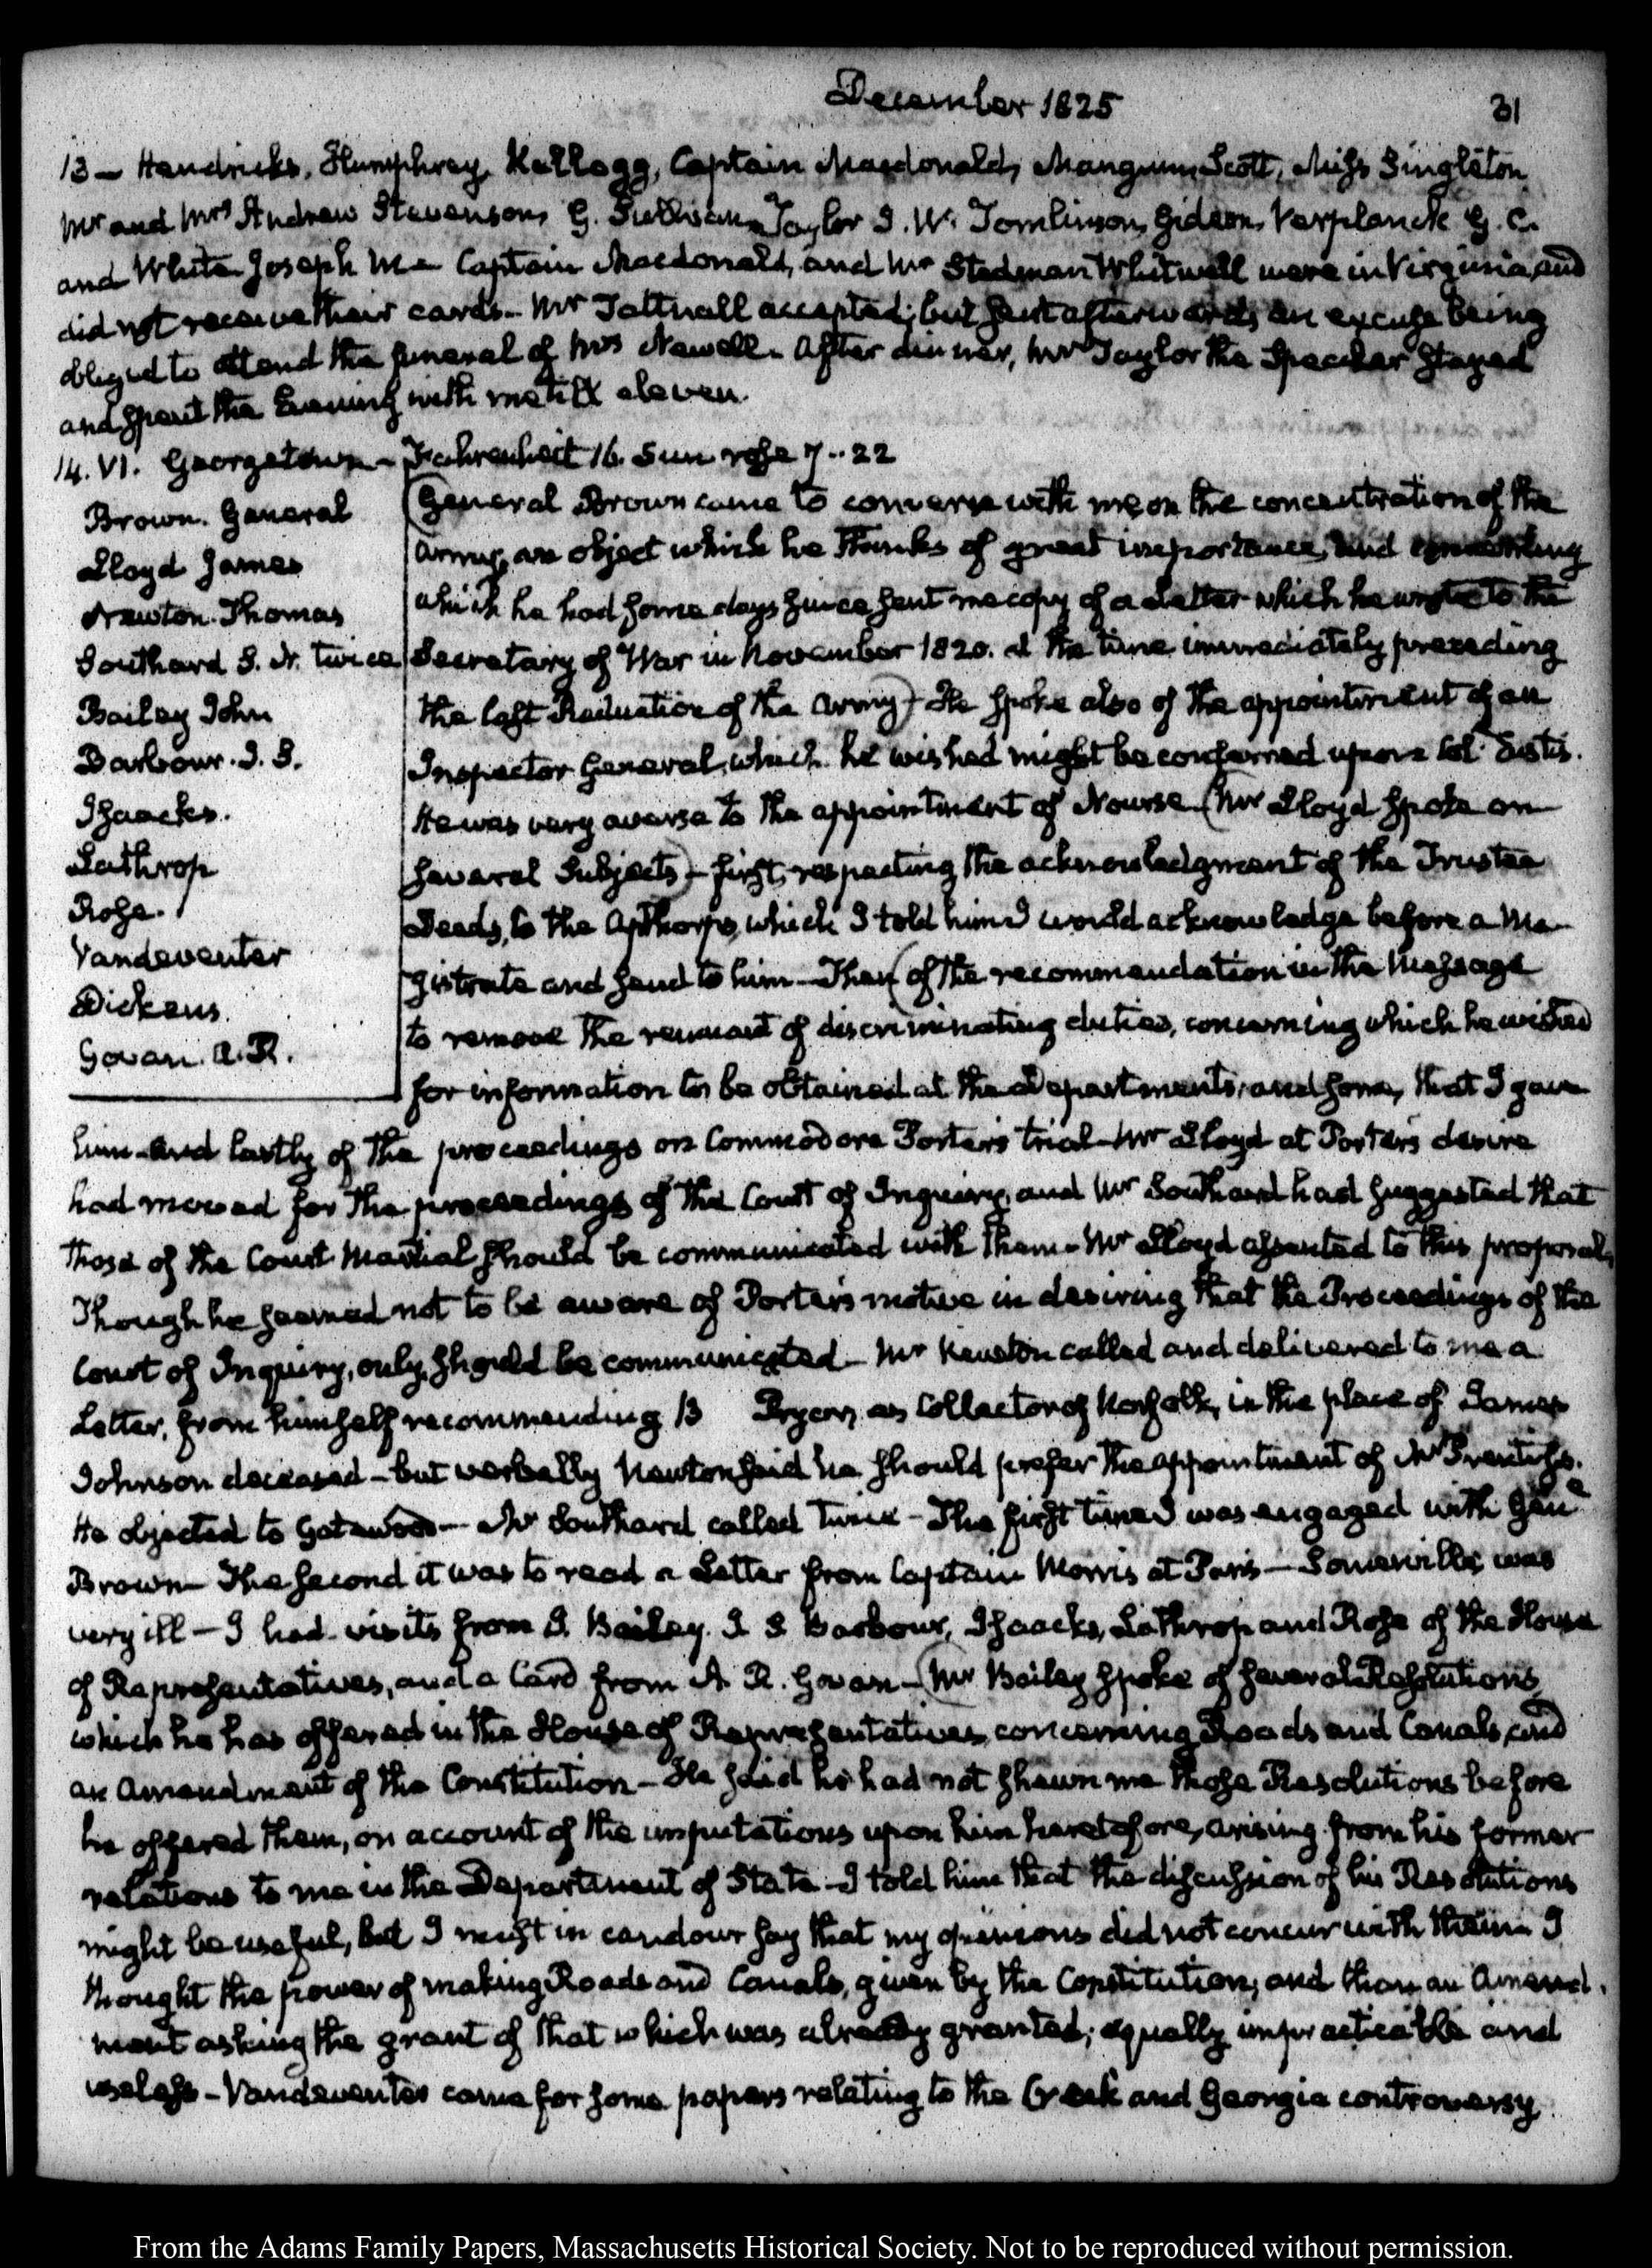 December 1825
31
13 — Hendricks, Humphrey, Kellogg, Captain Macdonald, Mangum, Scott, Miss Singleton
Mr and Mrs Andrew Stevenson, G. Taylor J. W. Tomlinson, Gideon, Verplanck G. C.
and White Joseph M — Captain Macdonald, and Mr Stedman Whitwell were in Virginia, and
did not receive their cards — Mr Tattnall accepted; but sent afterwards, an excuse being
obliged to attend the funeral of Mrs Newell. After dinner, Mr Taylor the Speaker stayed
and spent the Evening with me till eleven.
14. VI. Georgetown — Fahrenheit 16. Sun rose 7..22
Brown. General
Lloyd James
Newton. Thomas
Southard S. Lr. twice
Bailey John
Barbour. J. S.
Isaacks.
Lathrop
Rose.
Vandeventer
Dickens.
Govan. A. R.
(General Brown came to converse with me, on the concentration of the
army, an object which he thinks of great importance, and concerning
which he had some days since sent me copy of a Letter which he wrote to the
Secretary of War in November 1820. at the time immediately preceding
the last Reduction of the Army) — He spoke also of the appointment of an
Inspector General, which he wished might be conferred upon Col. Eustis.
He was very averse to the appointment of Nourse — (Mr Lloyd spoke on
several Subjects) — first, respecting the acknowledgment of the Trustee
Deeds, to the Apthorps, which I told him I would acknowledge before a Ma-
gistrate and send to him — Then (of the recommendation in the Message
to remove the remnant of discriminating duties, concerning which he wished
for information to be obtained at the Departments, and some, that I gave
him — and lastly of the proceedings on Commodore Porter's trial — Mr Lloyd at Porter's desire
had moved for the proceedings of the Court of Inquiry, and Mr Southard had suggested that
those of the Court Martial should be communicated with them — Mr Lloyd assented to this proposal,
Though he seemed not to be aware of Porter's motive in desiring that the Proceedings of the
Court of Inquiry, only, should be communicated — Mr Newton called and delivered to me a
Letter, from himself recommending B Pryor, as Collector of Norfolk, in the place of James
Johnson deceased — but verbally Newton said he should prefer the appointment of Mr Prentiss.
He objected to Gatewood — Mr Southard called twice — The first time I was engaged with Genl
Brown — The second it was to read a Letter from Captain Morris at Paris — Somerville, was
very ill — I had visits from J. Bailey. J S Barbour, Isaacks, Lathrop and Rose of the House
of Representatives, and a Card from A. R. Govan — (Mr Bailey spoke of several Resolutions
which he has offered in the House of Representatives, concerning Roads and Canals, and
an Amendment of the Constitution — He said he had not shewn me those Resolutions before
he offered them, on account of the imputations upon him heretofore, arising from his former
relations to me in the Department of State — I told him that the discussion of his Resolutions
might be useful, but I must in candour say that my opinions did not concur with them — I
thought the power of making Roads and Canals, given by the Constitution; and then an Amend-
ment asking the grant of that which was already granted; equally impracticable and
useless — Vandeventer came for some papers relating to the Creek and Georgia controversy
From the Adams Family Papers, Massachusetts Historical Society. Not to be reproduced without permission.